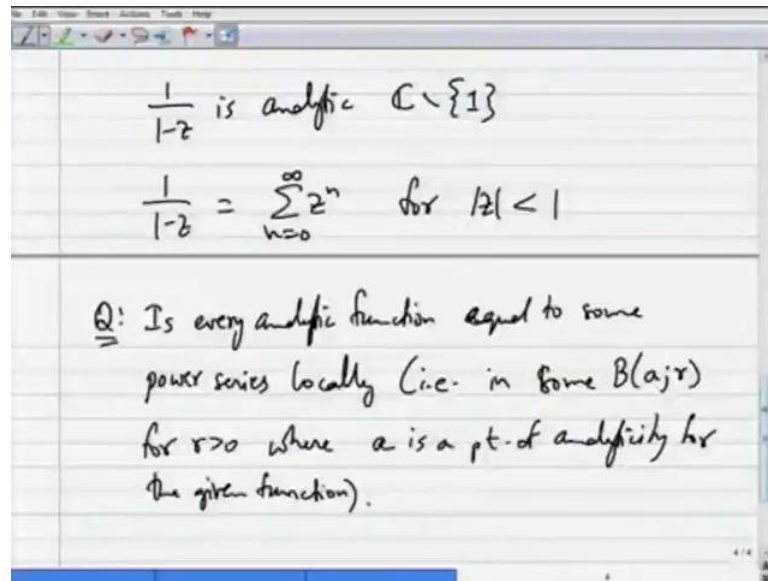 File Edit View Insert Actions Tools Help
1/(1-z) is analytic ℂ \ {1}
1/(1-z) = ∑_{n=0}^{∞} zⁿ for |z| < 1
Q: Is every analytic function equal to some
power series locally (i.e. in some B(a;r)
for r>0 where a is a pt. of analyticity for
the given function).
4/4